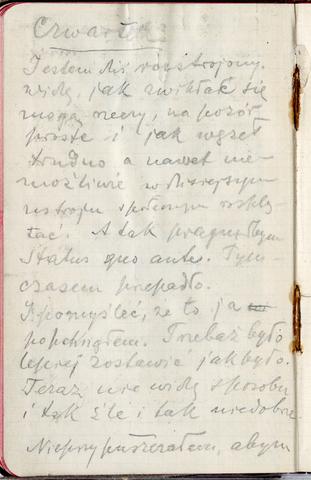 Czwartek
Jestem dziś rozstrojony.
Widzę, jak zwikłać się
mogą rzeczy, na pozór
proste i jak węzeł
trudno a nawet nie-
możliwie w dzisiejszym
ustroju społecznym rozplą-
tać. A tak pragnąłbym
status quo ante. Tym-
czasem przepadło.
I pomyśleć, że to ja
popchnąłem. Trzebaż było
lepiej zostawić jak było.
Teraz nie widzę sposobu
i tak źle i tak niedobrze.
Nie przypuszczałem, abym